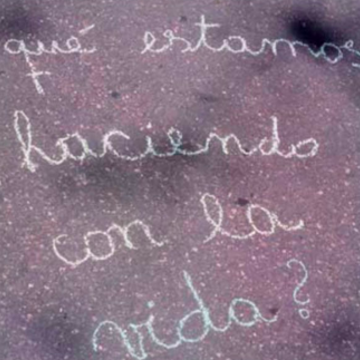 qué estamos
haciendo
con la
vida?